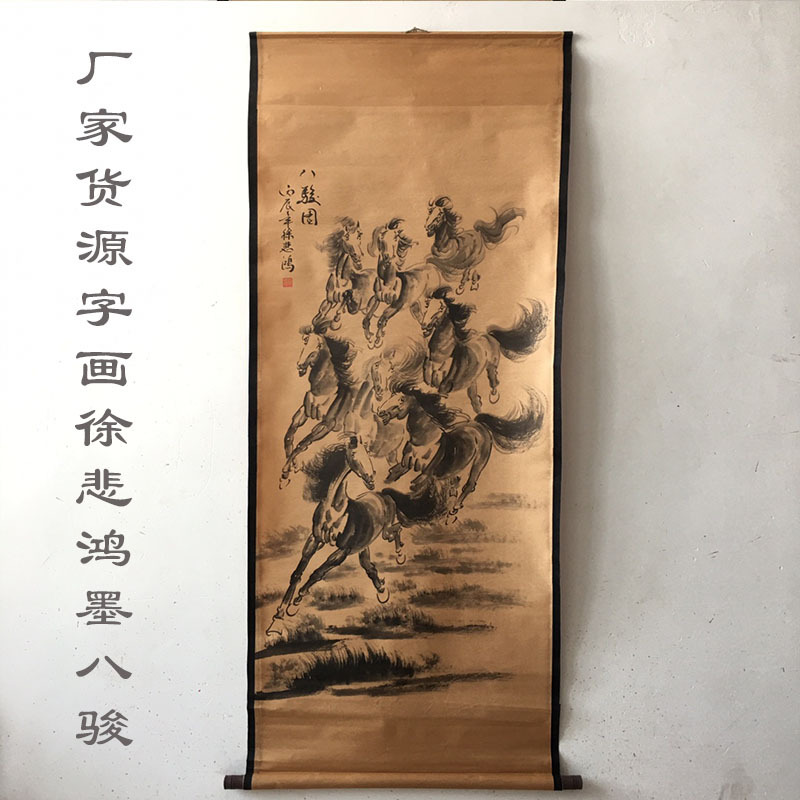 厂家货源字画徐悲鸿墨八骏
八駿图
丙辰年徐悲鴻